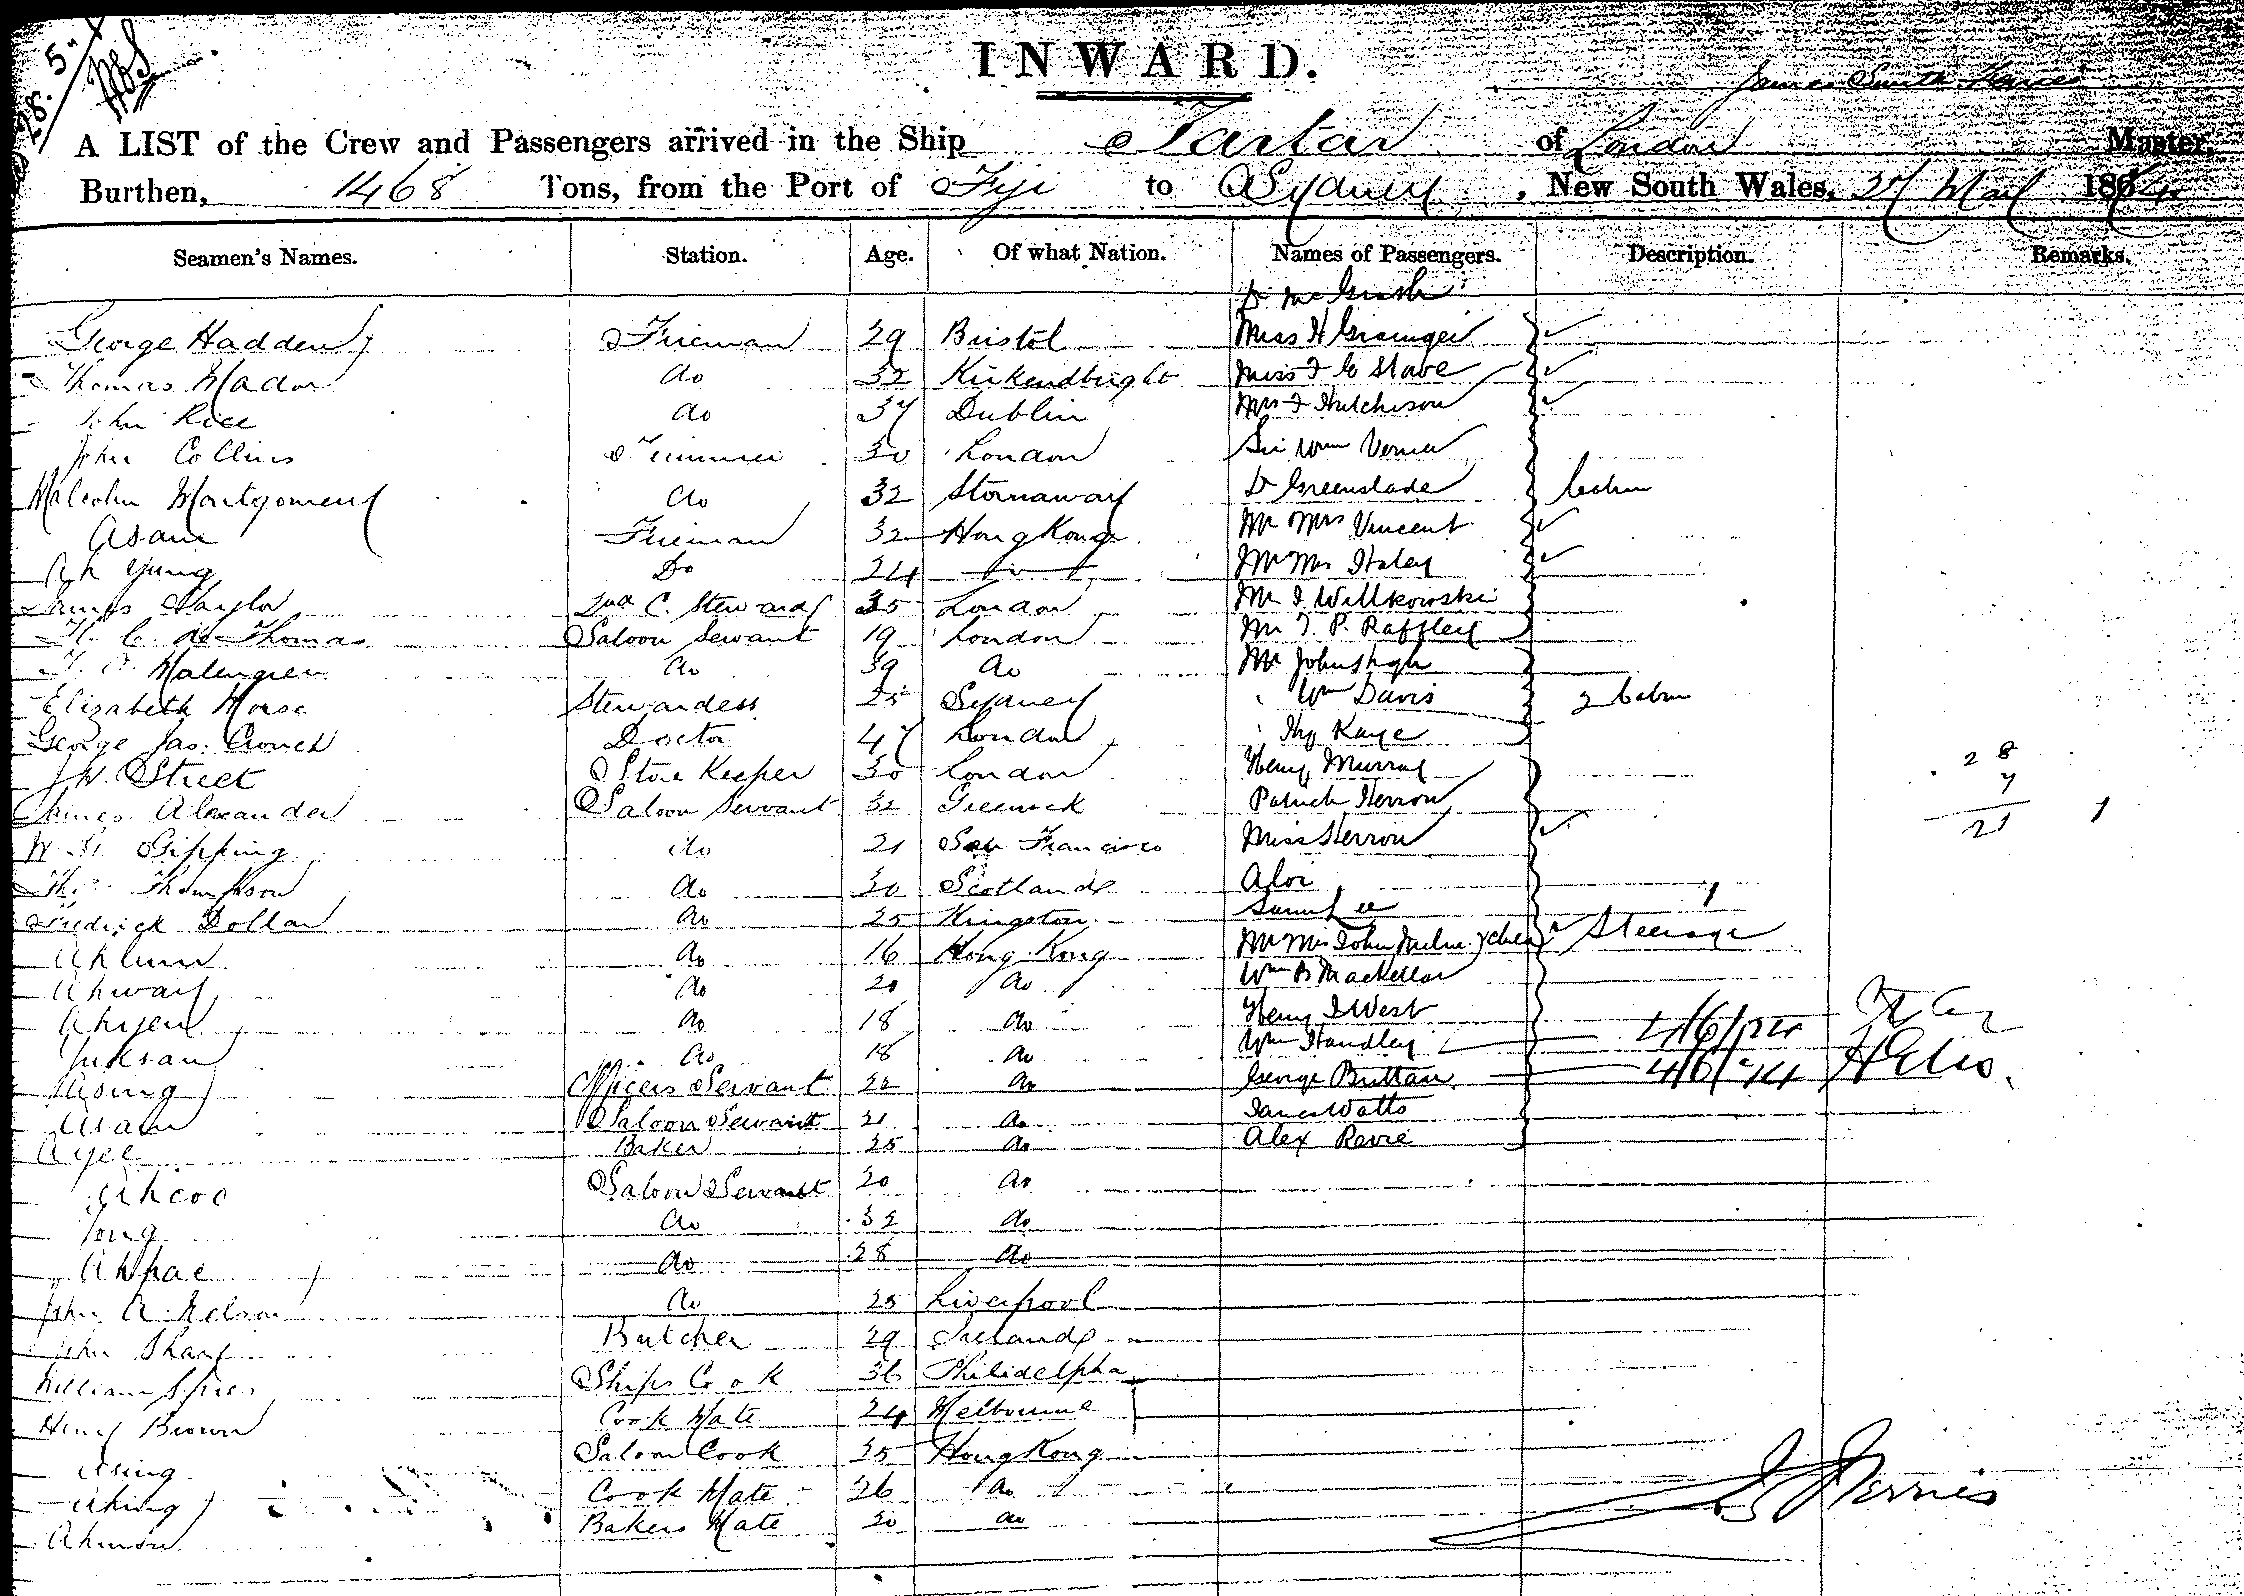 28. 5.
INWARD.
James Smith Ferries
A LIST of the Crew and Passengers arrived in the Ship Tartar of London Master,
Burthen, 1468 Tons, from the Port of Fiji to Sydney, New South Wales, 27 May 1874
Seamen's Names. Station. Age. Of what Nation. Names of Passengers. Description. Remarks.
Dr
George Hadden Fireman 29 Bristol Miss H Grainger
Thomas do 32 Kirkendbright Miss F G Stave
John Rice do 37 Dublin Mrs F Hutchison
John Collins Trimmer 30 London Sir Wm Verner
Malcolm Montgomery do 32 Stornaway Dr Greenslade Cabin
Asam Fireman 32 Hong Kong Mr Mrs Vincent
Ah Yung Do 24 do Mr Mrs Haley
James Naylor 2nd C. Steward 35 London Mr I Willkowski
H. C. de Thomas Saloon Servant 19 London Mr T. P. Raffley
Malmgren do 39 do Mr John
Elizabeth Morse Stewardess 25 Sydney Wm Davis 2 Cabin
George Jas. Crouch Doctor 47 London Hy Kaye
J W. Street Store Keeper 30 London Henry Murray 28
James Alexander Saloon Servant 32 Greenock Patrick Herron 7
W. H. Gipping do 21 San Francisco Miss Herron 21 1
Thos Thompson do 30 Scotland Aloi
Fredrick Dollar do 25 Kingston Sam 1
Ahlum do 16 Hong Kong Mr Mrs John Milne Steerage
Ahway do 20 do Wm B MacKellar
Ahyen do 18 do Henry I West
Yuksan do 18 do Wm Handley 4/6/74
Asing Officers Servant 20 do George Buttan 4/6/74
Asam Saloon Servant 21 do James Watts
Ayee Baker 25 do Alex Revie
Ahcoo Saloon Servant 20 do
Tong do 32 do
Ahpae do 28 do
John A. Nelson do 25 Liverpool
John Sharp Butcher 29 Ireland
William Spies Ships Cook 36 Philidelpha
Henry Brown Cook Mate 24 Melbourne
Asing Saloon Cook 35 Hong Kong
Ahing Cook Mate 26 do
Ahmow Bakers Mate 30 do
J S Ferries